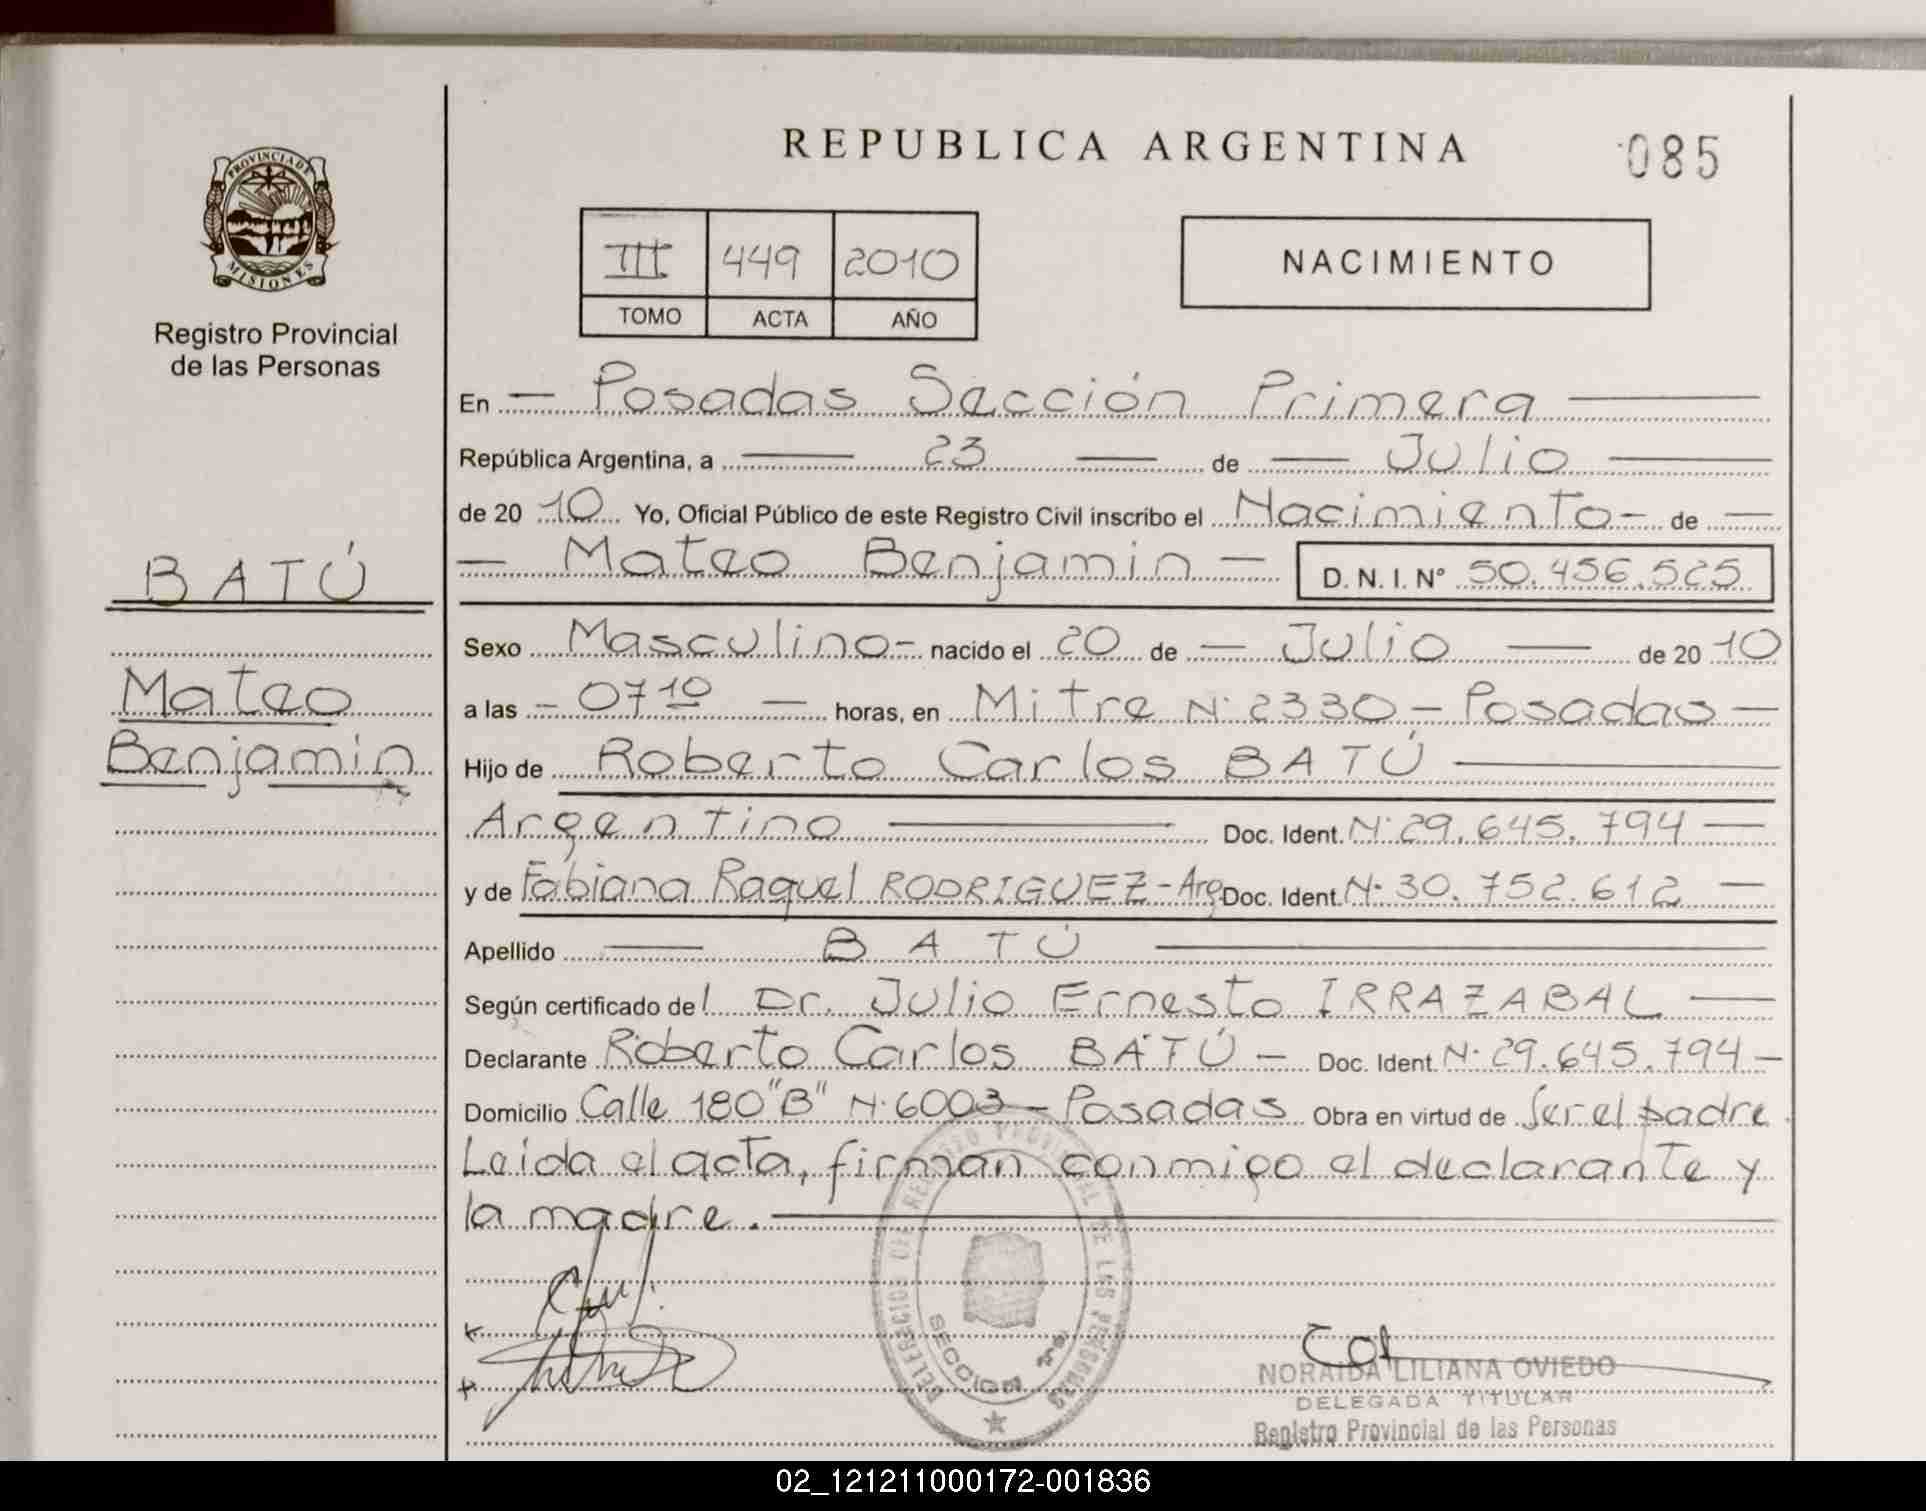 REPUBLICA ARGENTINA
085
PROVINCIA DE
MISIONES
Registro Provincial
de las Personas
III 449 2010
TOMO ACTA AÑO
NACIMIENTO
BATÚ
Mateo
Benjamin
En — Posadas Sección Primera —
República Argentina, a — 23 — de — Julio —
de 20 10 Yo, Oficial Público de este Registro Civil inscribo el Nacimiento - de —
— Mateo Benjamin — D. N. I. N° 50.456.525
Sexo Masculino - nacido el 20 de — Julio — de 20 10
a las - 07 10 — horas, en Mitre N° 2330 - Posadas —
Hijo de Roberto Carlos BATÚ —
Argentino — Doc. Ident. N° 29.645.794 —
y de Fabiana Raquel RODRIGUEZ - Arg Doc. Ident. N° 30.752.612 —
Apellido — BATÚ —
Según certificado del Dr. Julio Ernesto IRRAZABAL —
Declarante Roberto Carlos BATÚ — Doc. Ident. N° 29.645.794 —
Domicilio Calle 180 "B" N° 6003 - Posadas Obra en virtud de Ser el padre.
Leida el acta, firman conmigo el declarante y
la madre. —
DELEGACION DEL REGISTRO PROVINCIAL DE LAS PERSONAS
SECCION 1ra
NORAIDA LILIANA OVIEDO
DELEGADA TITULAR
Registro Provincial de las Personas
02_121211000172-001836